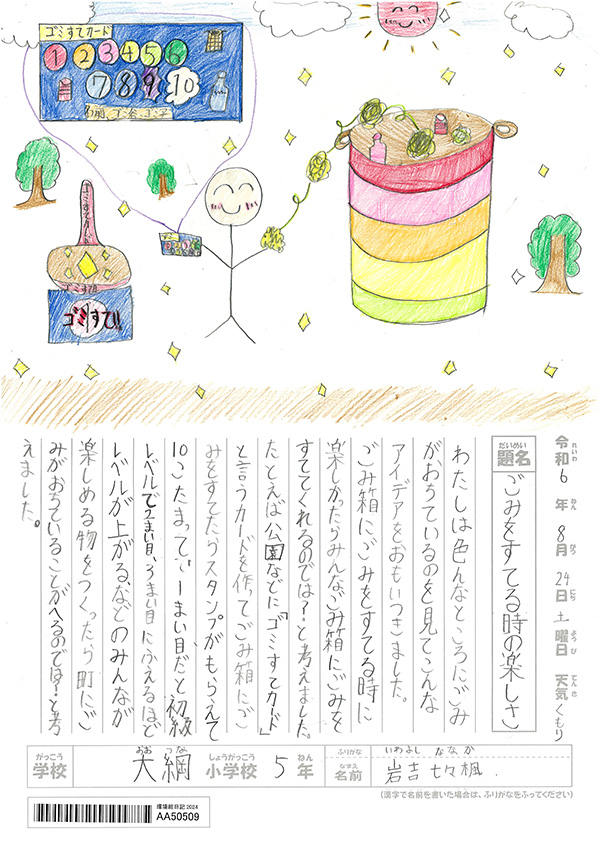 ゴミすてカード
1 2 3 4 5 6
7 8 9 10
名前、ゴミ箱、ゴミ子
ゴミすてカード
ゴミすて!!
令和6年8月24日土曜日 天気くもり
れいわ ねん がつ にち ようび てんき
だいめい
題名 ごみをすてる時の楽しさ
わたしは色んなところにごみ
がおちているのを見てこんな
アイデアをおもいつきました。
ごみ箱にごみをすてる時に
楽しかったらみんなごみ箱にごみを
すててくれるのでは?と考えました。
たとえば公園などに「ゴミすてカード」
と言うカードを作ってごみ箱にご
みをすてたらスタンプがもらえて
10こたまって、1まい目だと初級
レベルで2まい目、3まい目にふえるほど
レベルが上がる、などのみんなが
楽しめる物をつくったら町にご
みがおちていることがへるのでは?と考
えました。
がっこう おおつな しょうがっこう ねん ふりがな いわよし ななか
学校 大綱 小学校 5年 なまえ 名前 岩吉 七々楓
(漢字で名前を書いた場合は、ふりがなをふってください)
環境絵日記2024
AA50509